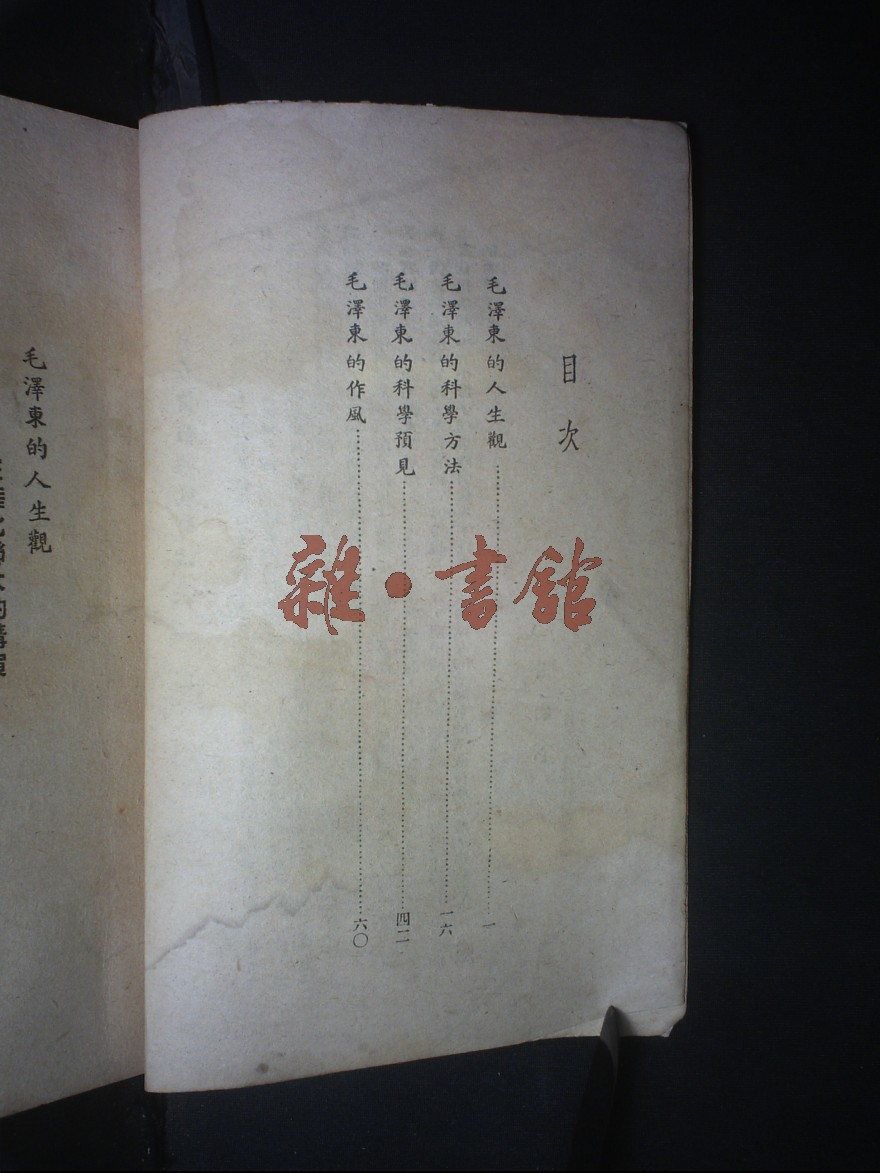 目次
毛澤東的人生觀……一
毛澤東的科學方法……一六
毛澤東的科學預見……四二
毛澤東的作風……六〇
雜·書館
毛澤東的人生觀